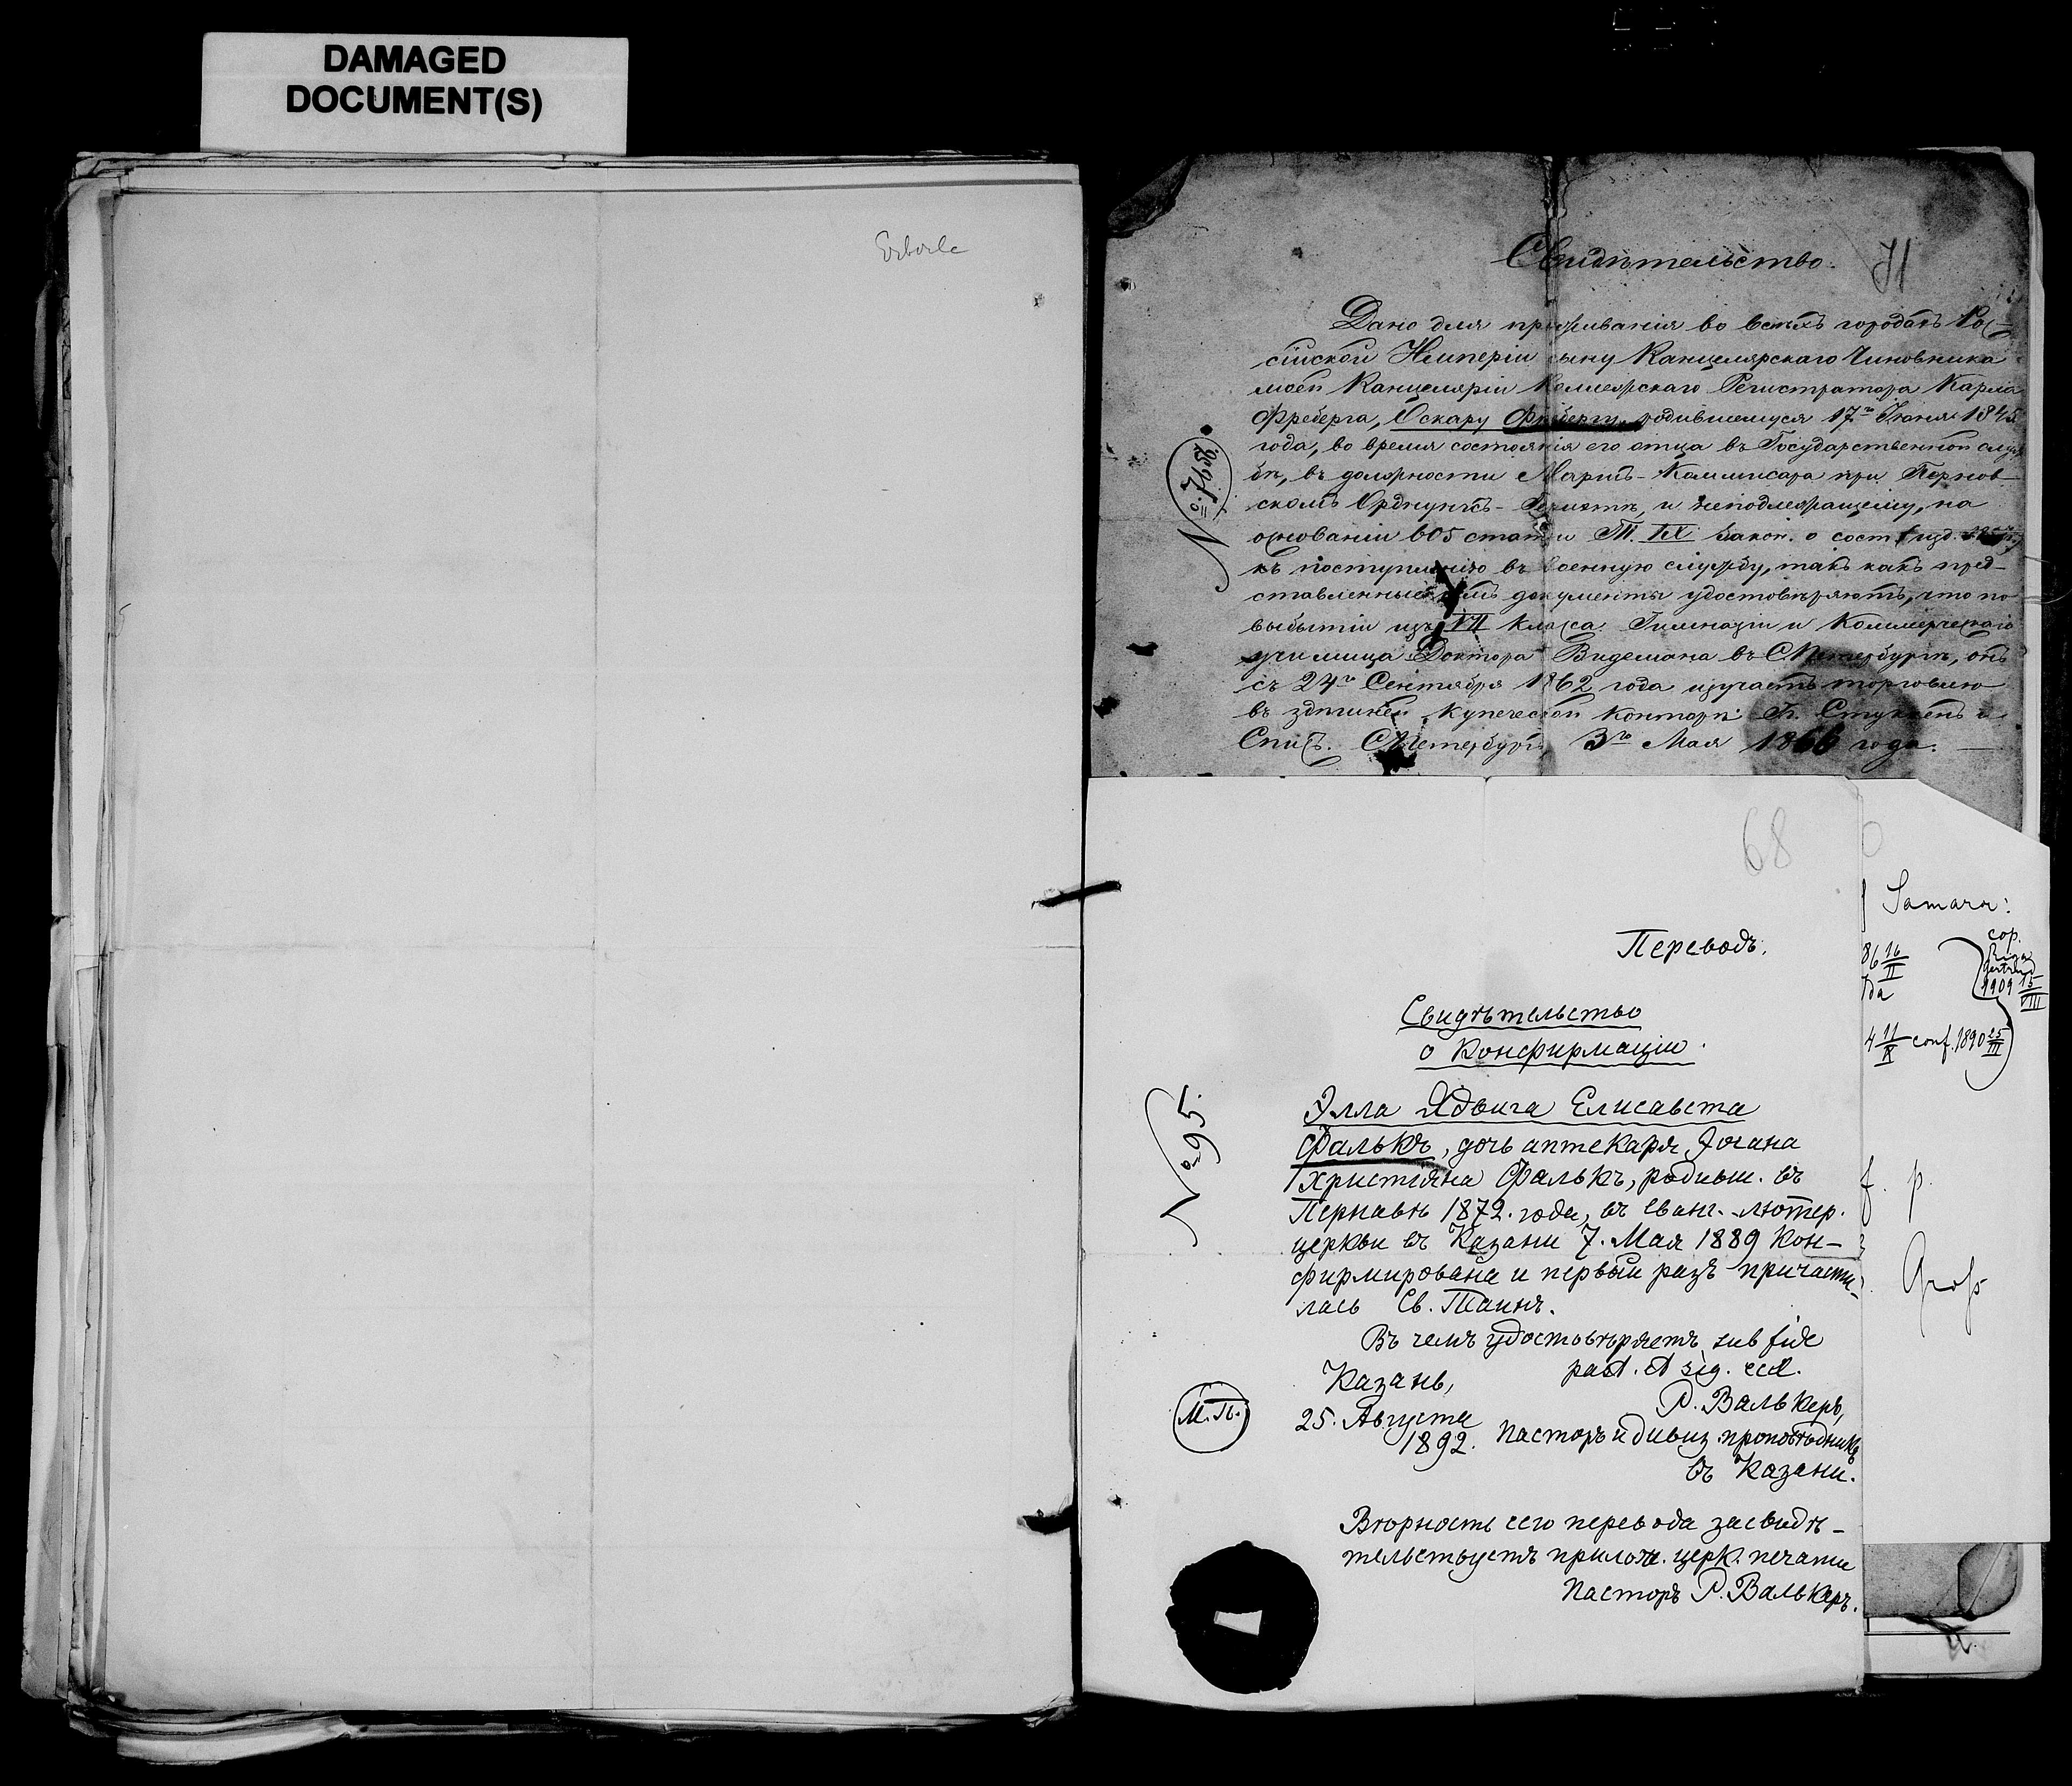 DAMAGED
DOCUMENT(S)
Свидѣтельство.
71
Дано для проживанія во всѣхъ городахъ Рос-
сійской Имперіи сыну Канцелярскаго Чиновника
моей Канцеляріи Коллежскаго Регистратора Карла
Фреберга, Оскару Фребергу, родившемуся 17го Іюня 1845
года, во время состоянія его отца въ Государственной служ
бѣ, въ должности Маршъ-Коммисара при Пернов-
скомъ Орднунгсъ-Герихтѣ, и неподлежащему, на
основаніи 605 статьи Т. IX Закон. о сост. (изд. 1857 г.)
къ поступленію въ военную службу, такъ какъ пред-
ставленные имъ документы удостовѣряютъ, что по
выбытіи изъ VII класса Гимназіи и Коммерческаго
училища Доктора Видемана въ СПетербургѣ, онъ
съ 24го Сентября 1862 года изучаетъ торговлю
въ здѣшней купеческой конторѣ
СПетербургъ, 3го Мая 1866 года.
68
Переводъ.
Свидѣтельство
о Конфирмаціи.
№ 95.
Элла Ядвига Елисавета
Фалькъ, дочь аптекаря Іогана
Христіяна Фалькъ, родивш. въ
Пернавѣ 1872. года, въ еванг.-лютер.
церкви въ Казани 7. Мая 1889 кон-
фирмирована и первый разъ причасти-
лась Св. Таинъ.
Въ чемъ удостовѣряетъ sub fide
past. et sig. eccl.
Казань,
Р. Валькеръ,
М. П.
25. Августа
1892.
Пасторъ и дивиз. проповѣдникъ
въ Казани.
Вѣрность сего перевода засвидѣ-
тельствуетъ прилож. церк. печати
Пасторъ Р. Валькеръ.
Samara:
cop.
Riga
Gertrud
1909 15/VIII
86 16/II
4 11/IX conf. 1890 25/III
f. p.
Gross